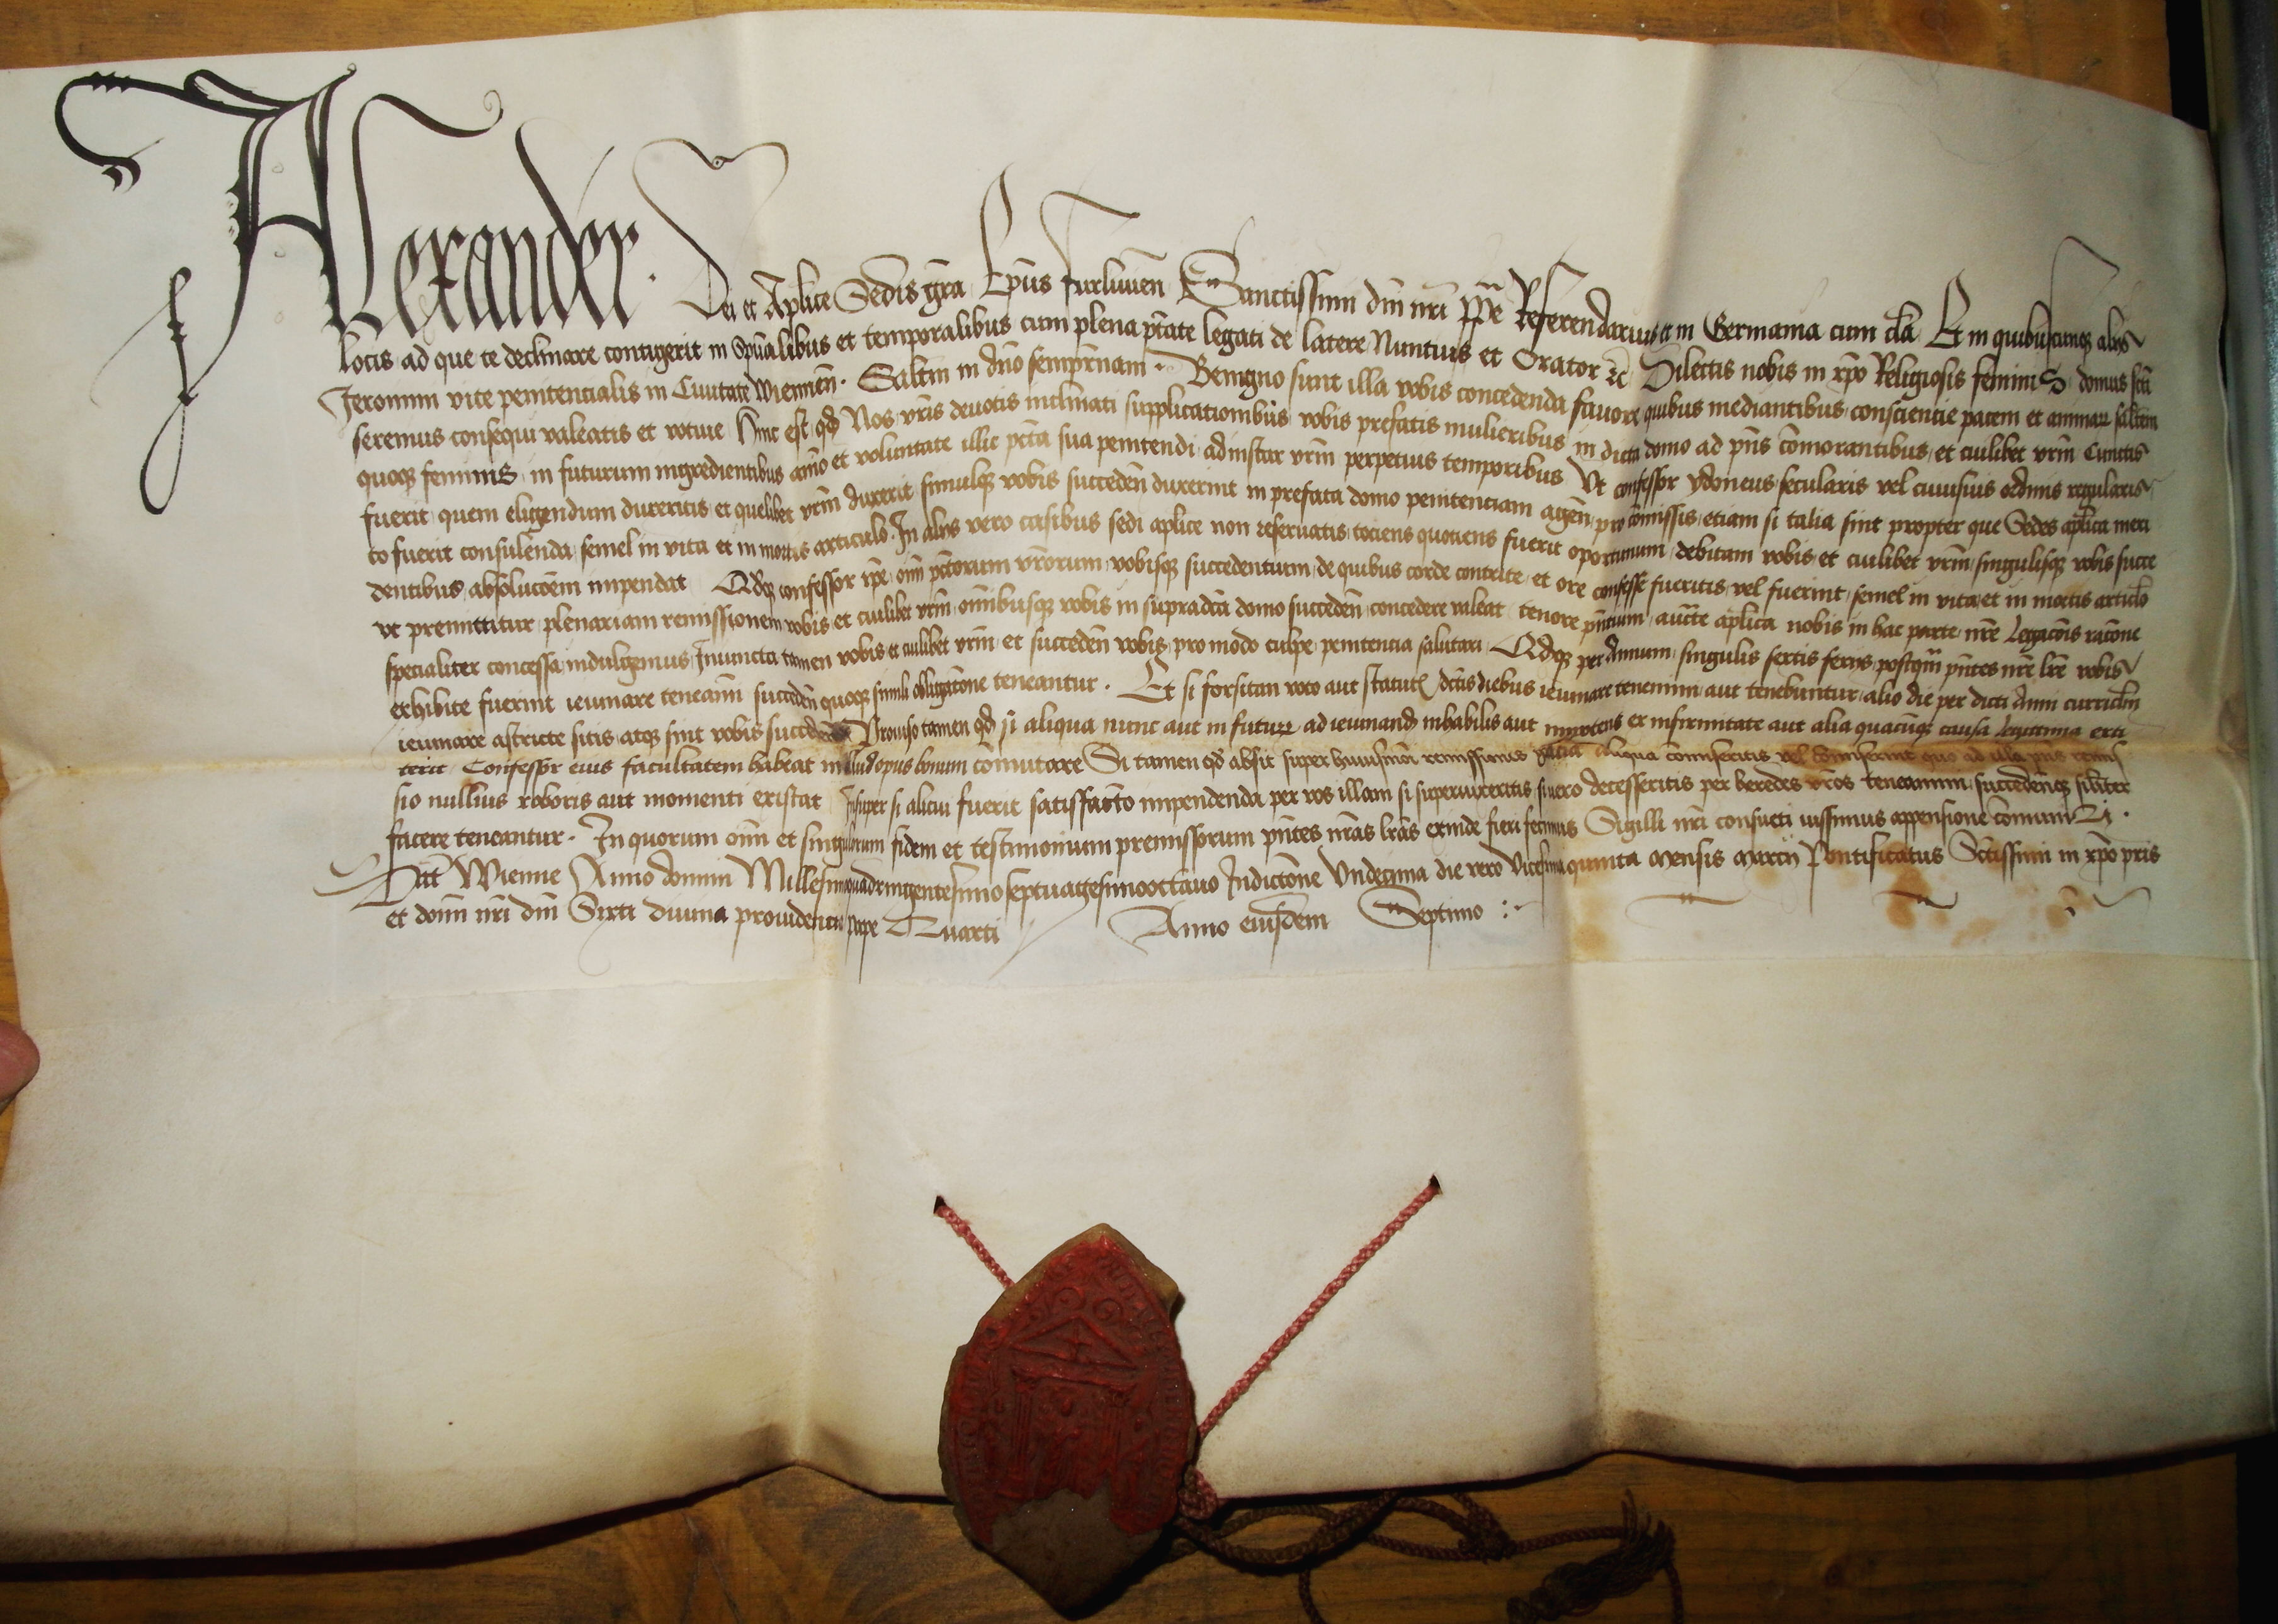 Alexander. Dei et Aplice Sedis gra Epus Furliuien Sanctissimi dni nri ppe Referendarius et in Germania cum cla Et in quibuscunqz alijs
locis ad que te declinare contigerit in Spualibus et temporalibus cum plena ptate legati de latere Nuntius et Orator zc Dilectis nobis in xpo Religiosis feminis domus scti
Jeronimi vite penitencialis in Ciuitate Wiennen. Saltm in dno semprnam. Benigno sunt illa vobis concedenda fauore quibus mediantibus conscientie pacem et animar saltem
seremus consequi valeatis et votiue Hinc est qd Nos vris deuotis inclinati supplicationibus vobis prefatis mulieribus in dicta domo ad pns comorantibus et cuilibet vrm Cunctis
quoqz feminis in futurum ingredientibus aimo et voluntate illic pcta sua penitendi ad instar vrm perpetuis temporibus Vt confessor ydoneus secularis vel cuiusuis ordinis regularis
fuerit quem eligendum duxeritis et quelibet vrm duxerit simulqz vobis succeden duxerint in prefata domo penitentiam agen pro comissis etiam si talia sint propter que Sedes aplica meri
to fuerit consulenda semel in vita et in mortis articulo. In alijs vero casibus sedi aplice non reseruatis tociens quotiens fuerit oportunum debitam vobis et cuilibet vrm singulisqz vobis succe
dentibus absolucoem impendat Qdqz confessor ipe oim pctorum vrorum vobisqz succedentium de quibus corde contrite et ore confesse fueritis vel fuerint semel in vita et in mortis articlo
vt premittitur plenariam remissionem vobis et cuilibet vrm omibusqz vobis in supradcta domo succeden concedere valeat tenore pntium aucte aplica nobis in hac parte nre Legacois racone
specialiter concessa indulgemus Iniuncta tamen vobis et cuilibet vrm et succeden vobis pro modo culpe penitencia salutari Qdqz per Annum singulis sextis ferijs postqm pntes nre lre vobis
exhibite fuerint ieiunare teneami succeden quoqz simili obligacone teneantur. Et si forsitan voto aut statut dctis diebus ieiunare tenemini aut tenebuntur alio die per dicti Anni curriclm
ieiunare astricte sitis atqz sint vobis succeden Prouiso tamen qd si aliqua nunc aut in futur ad ieiunand inhabilis aut impotens ex infirmitate aut alia quacuqz causa legittima exti
terit Confessor eius facultatem habeat in illud opus bonum comutare Si tamen qd absit super huiusmoi remissionis gracia aliqua comiseritis vel comiserint quo ad illa pns remis
sio nullius roboris aut momenti existat Insuper si alicui fuerit satisfacto impendenda per vos illam si superuixeritis si uero decesseritis per heredes vros teneamini succedenqz silibter
facere teneantur. In quorum oim et singulorum fidem et testimonium premissorum pntes nras lras exinde fieri fecimus Sigilli nri consueti iussimus appensione comuniri.
Datt Wienne Anno domini Millesimoquadringentesimoseptuagesimooctauo Indictone Vndecima die vero Vicesimaquinta Mensis Marcij Pontificatus Sctissimi in xpo pris
et domi nri dni Sixti diuina prouidencia pape Quarti Anno eiusdem Septimo